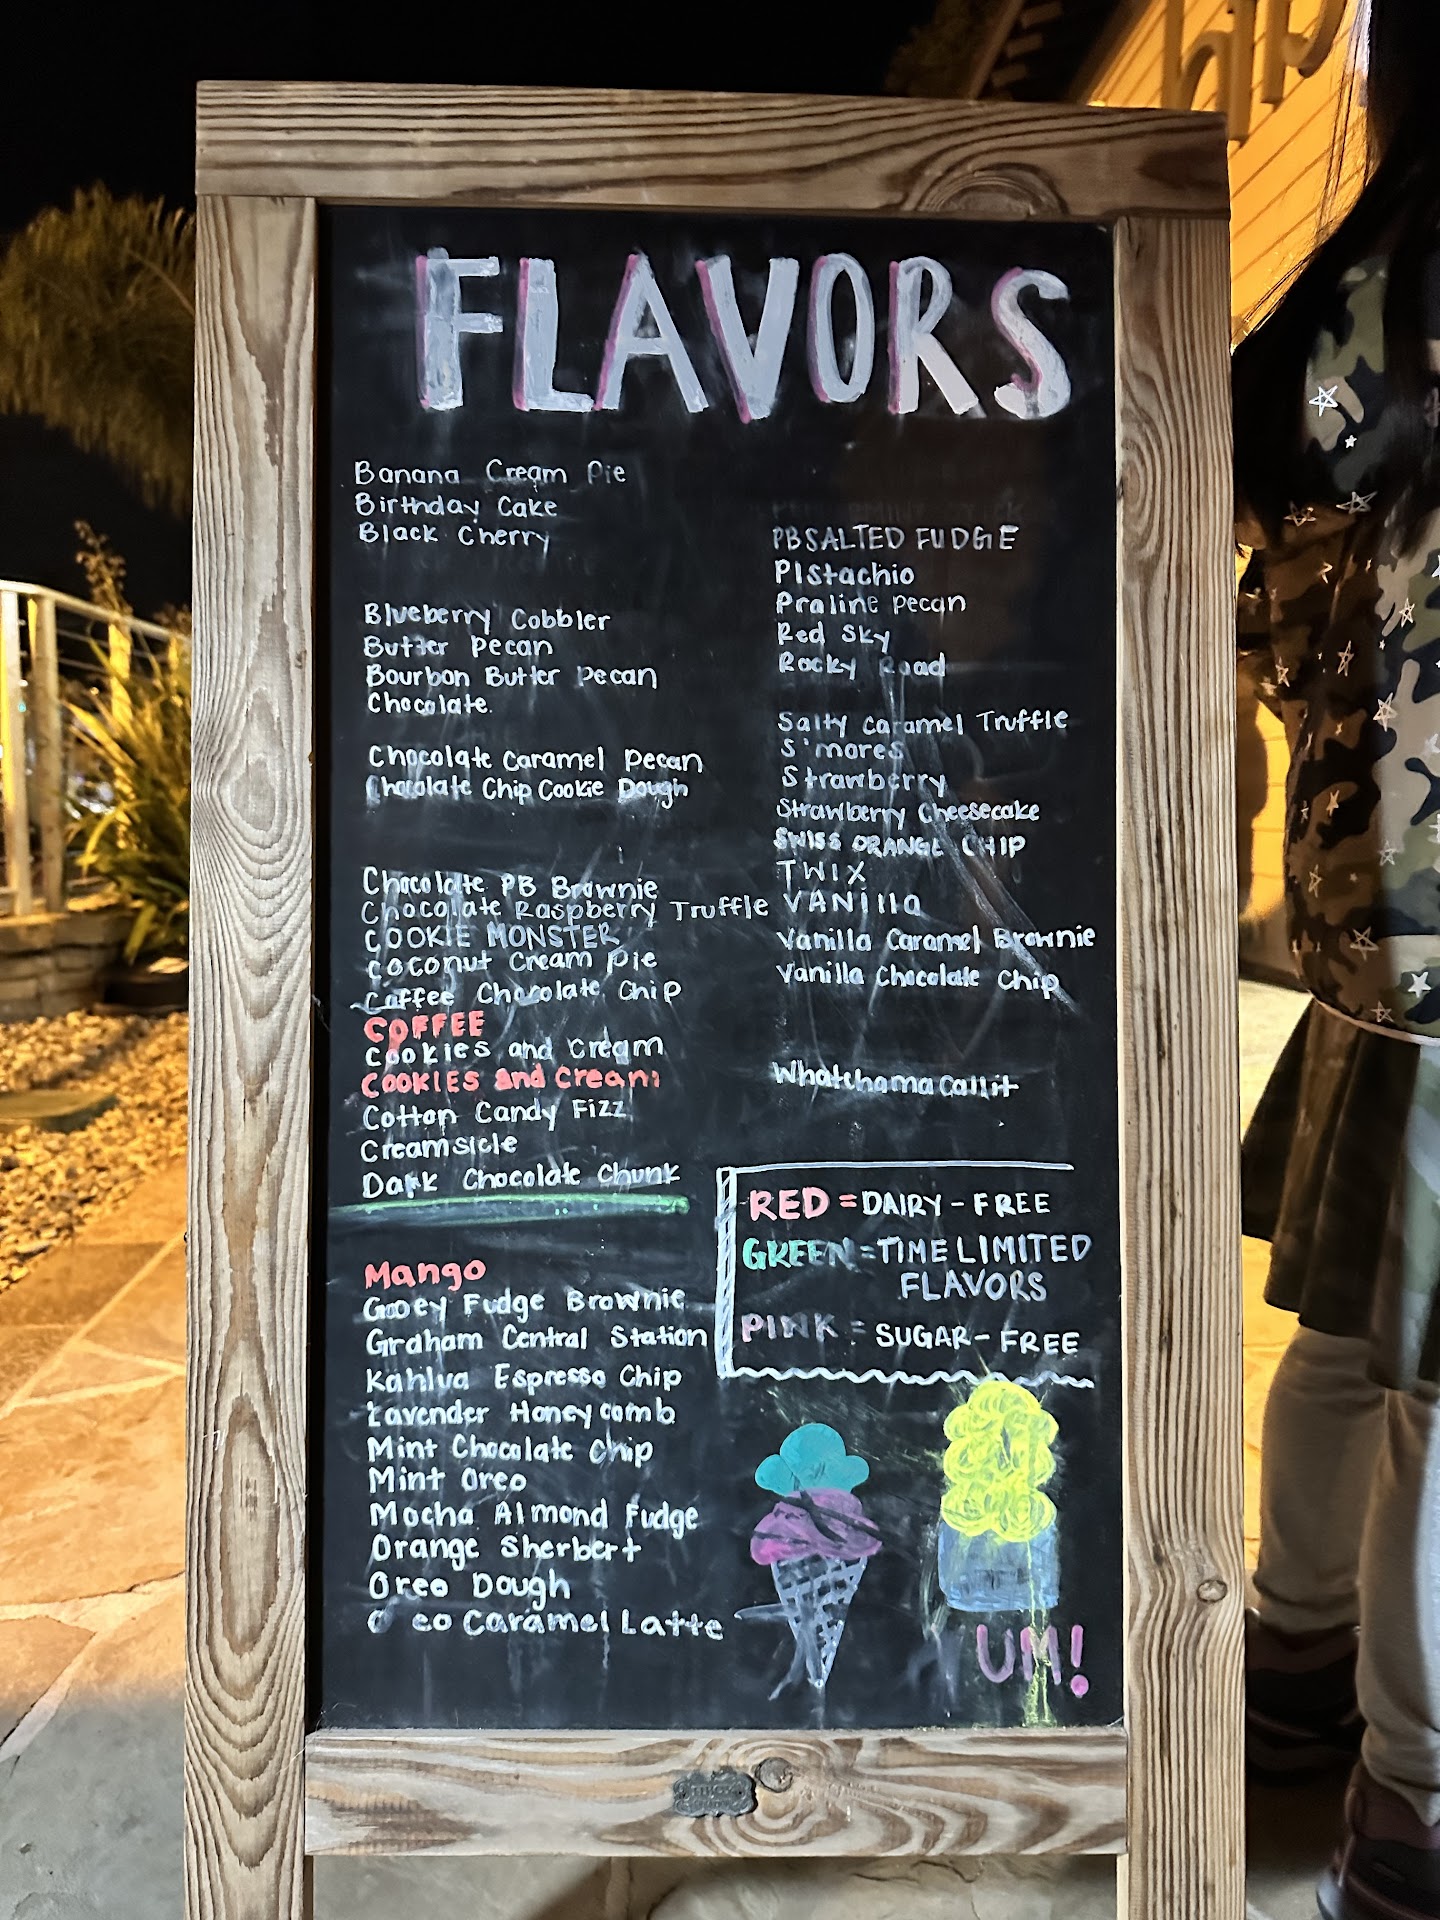 FLAVORS
Banana Cream Pie
Birthday Cake
Black Cherry
Blueberry Cobbler
Butter Pecan
Bourbon Butter Pecan
Chocolate.
Chocolate Caramel Pecan
Chocolate Chip Cookie Dough
Chocolate PB Brownie
Chocolate Raspberry Truffle
COOKIE MONSTER
Coconut Cream Pie
Coffee Chocolate Chip
COFFEE
Cookies and Cream
COOKIES and Cream
Cotton Candy Fizz
Creamsicle
Dark Chocolate Chunk
Mango
Gooey Fudge Brownie
Graham Central Station
Kahlua Espresso Chip
Lavender Honeycomb
Mint Chocolate Chip
Mint Oreo
Mocha Almond Fudge
Orange Sherbert
Oreo Dough
O eo Caramel Latte
PB SALTED FUDGE
Pistachio
Praline Pecan
Red Sky
Rocky Road
Salty Caramel Truffle
S'mores
Strawberry
Strawberry Cheesecake
SWISS ORANGE CHIP
TWIX
VANilla
Vanilla Caramel Brownie
Vanilla Chocolate Chip
Whatchamacallit
RED = DAIRY-FREE
GREEN = TIME LIMITED
FLAVORS
PINK = SUGAR-FREE
UM!